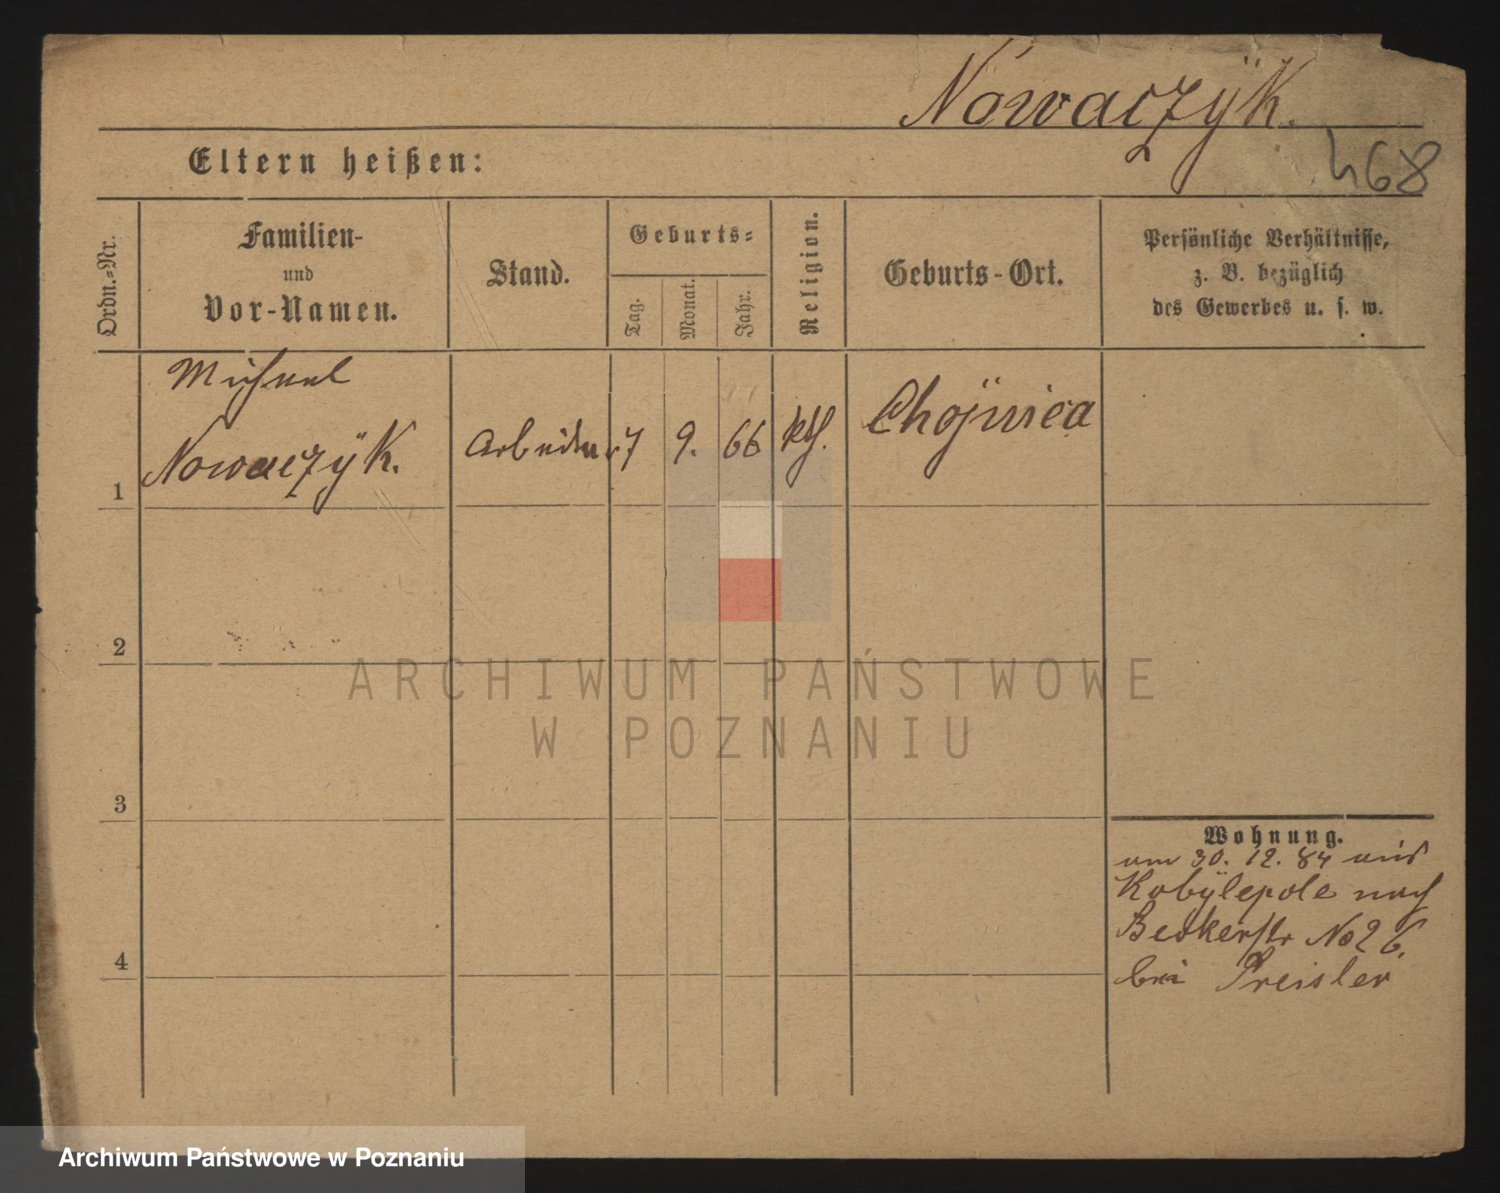 Nowaczÿk.
468
Eltern heißen:
Ordn.-Nr.
Familien-
und
Vor-Namen.
Stand.
Geburts-
Tag.
Monat.
Jahr.
Religion.
Geburts-Ort.
Persönliche Verhältnisse,
z. B. bezüglich
des Gewerbes u. s. w.
1
Michael
Nowaczÿk.
Arbeiter
7
9.
66
kth.
Chojnica
2
3
4
Wohnung.
am 30. 12. 84 aus
Kobÿlepole nach
Beckerstr No 26.
bei Preisler
ARCHIWUM PAŃSTWOWE
W POZNANIU
Archiwum Państwowe w Poznaniu